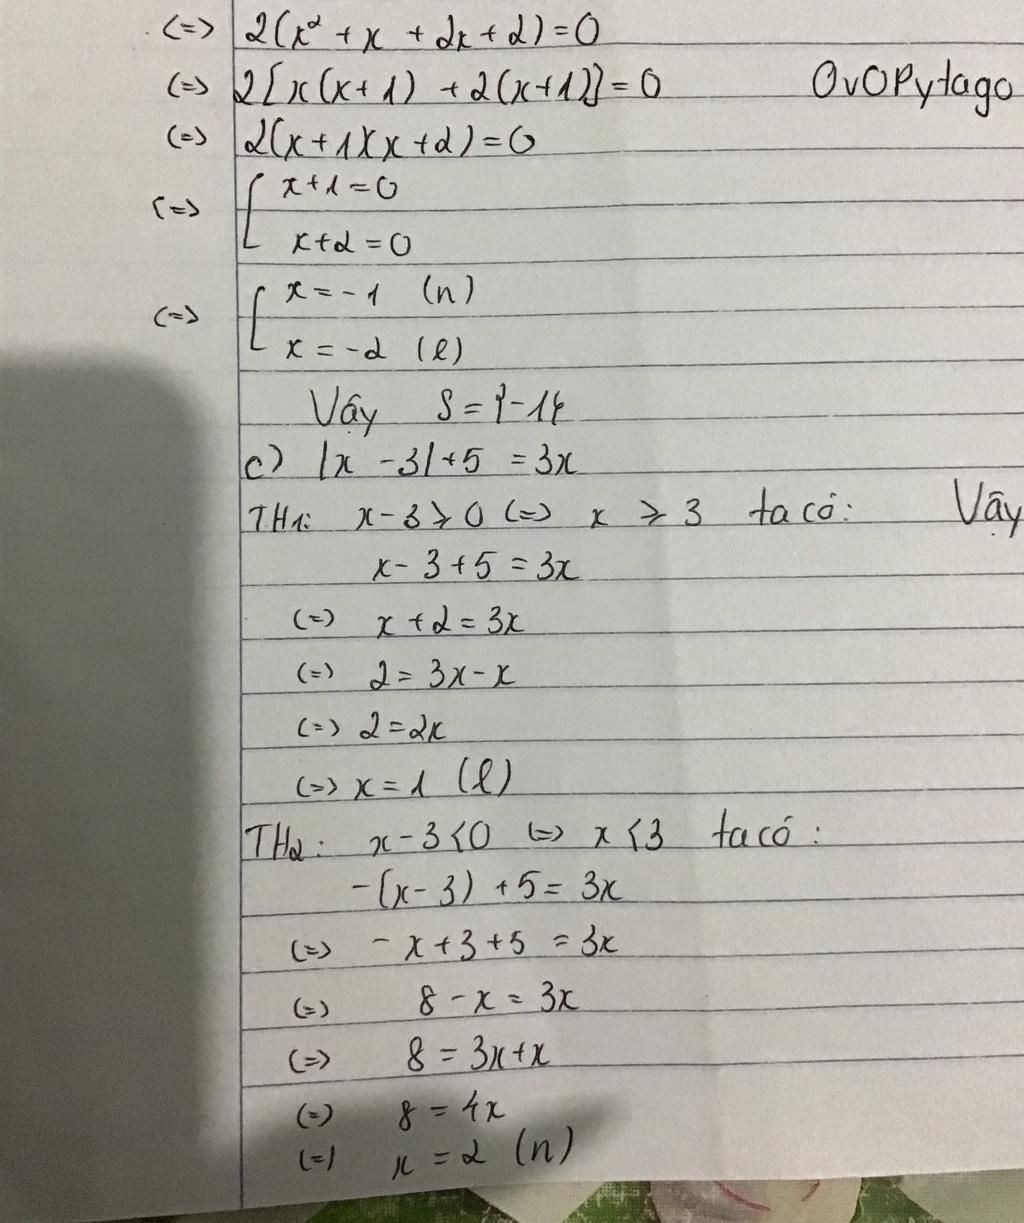 (=> 2(x² + x + 2x + 2) = 0
(=> 2[x(x+1) + 2(x+1)] = 0 OvOPytago
(=> 2(x+1)(x+2) = 0
(=> [ x+1 = 0
x+2 = 0
(=> [ x = -1 (n)
x = -2 (l)
Vậy S = {-1}
c) |x - 3| + 5 = 3x
TH1: x - 3 ≥ 0 (=> x ≥ 3 ta có: Vậy
x - 3 + 5 = 3x
(=> x + 2 = 3x
(=> 2 = 3x - x
(=> 2 = 2x
(=> x = 1 (l)
TH2: x - 3 < 0 (=> x < 3 ta có:
-(x - 3) + 5 = 3x
(=> - x + 3 + 5 = 3x
(=> 8 - x = 3x
(=> 8 = 3x + x
(=> 8 = 4x
(=> x = 2 (n)